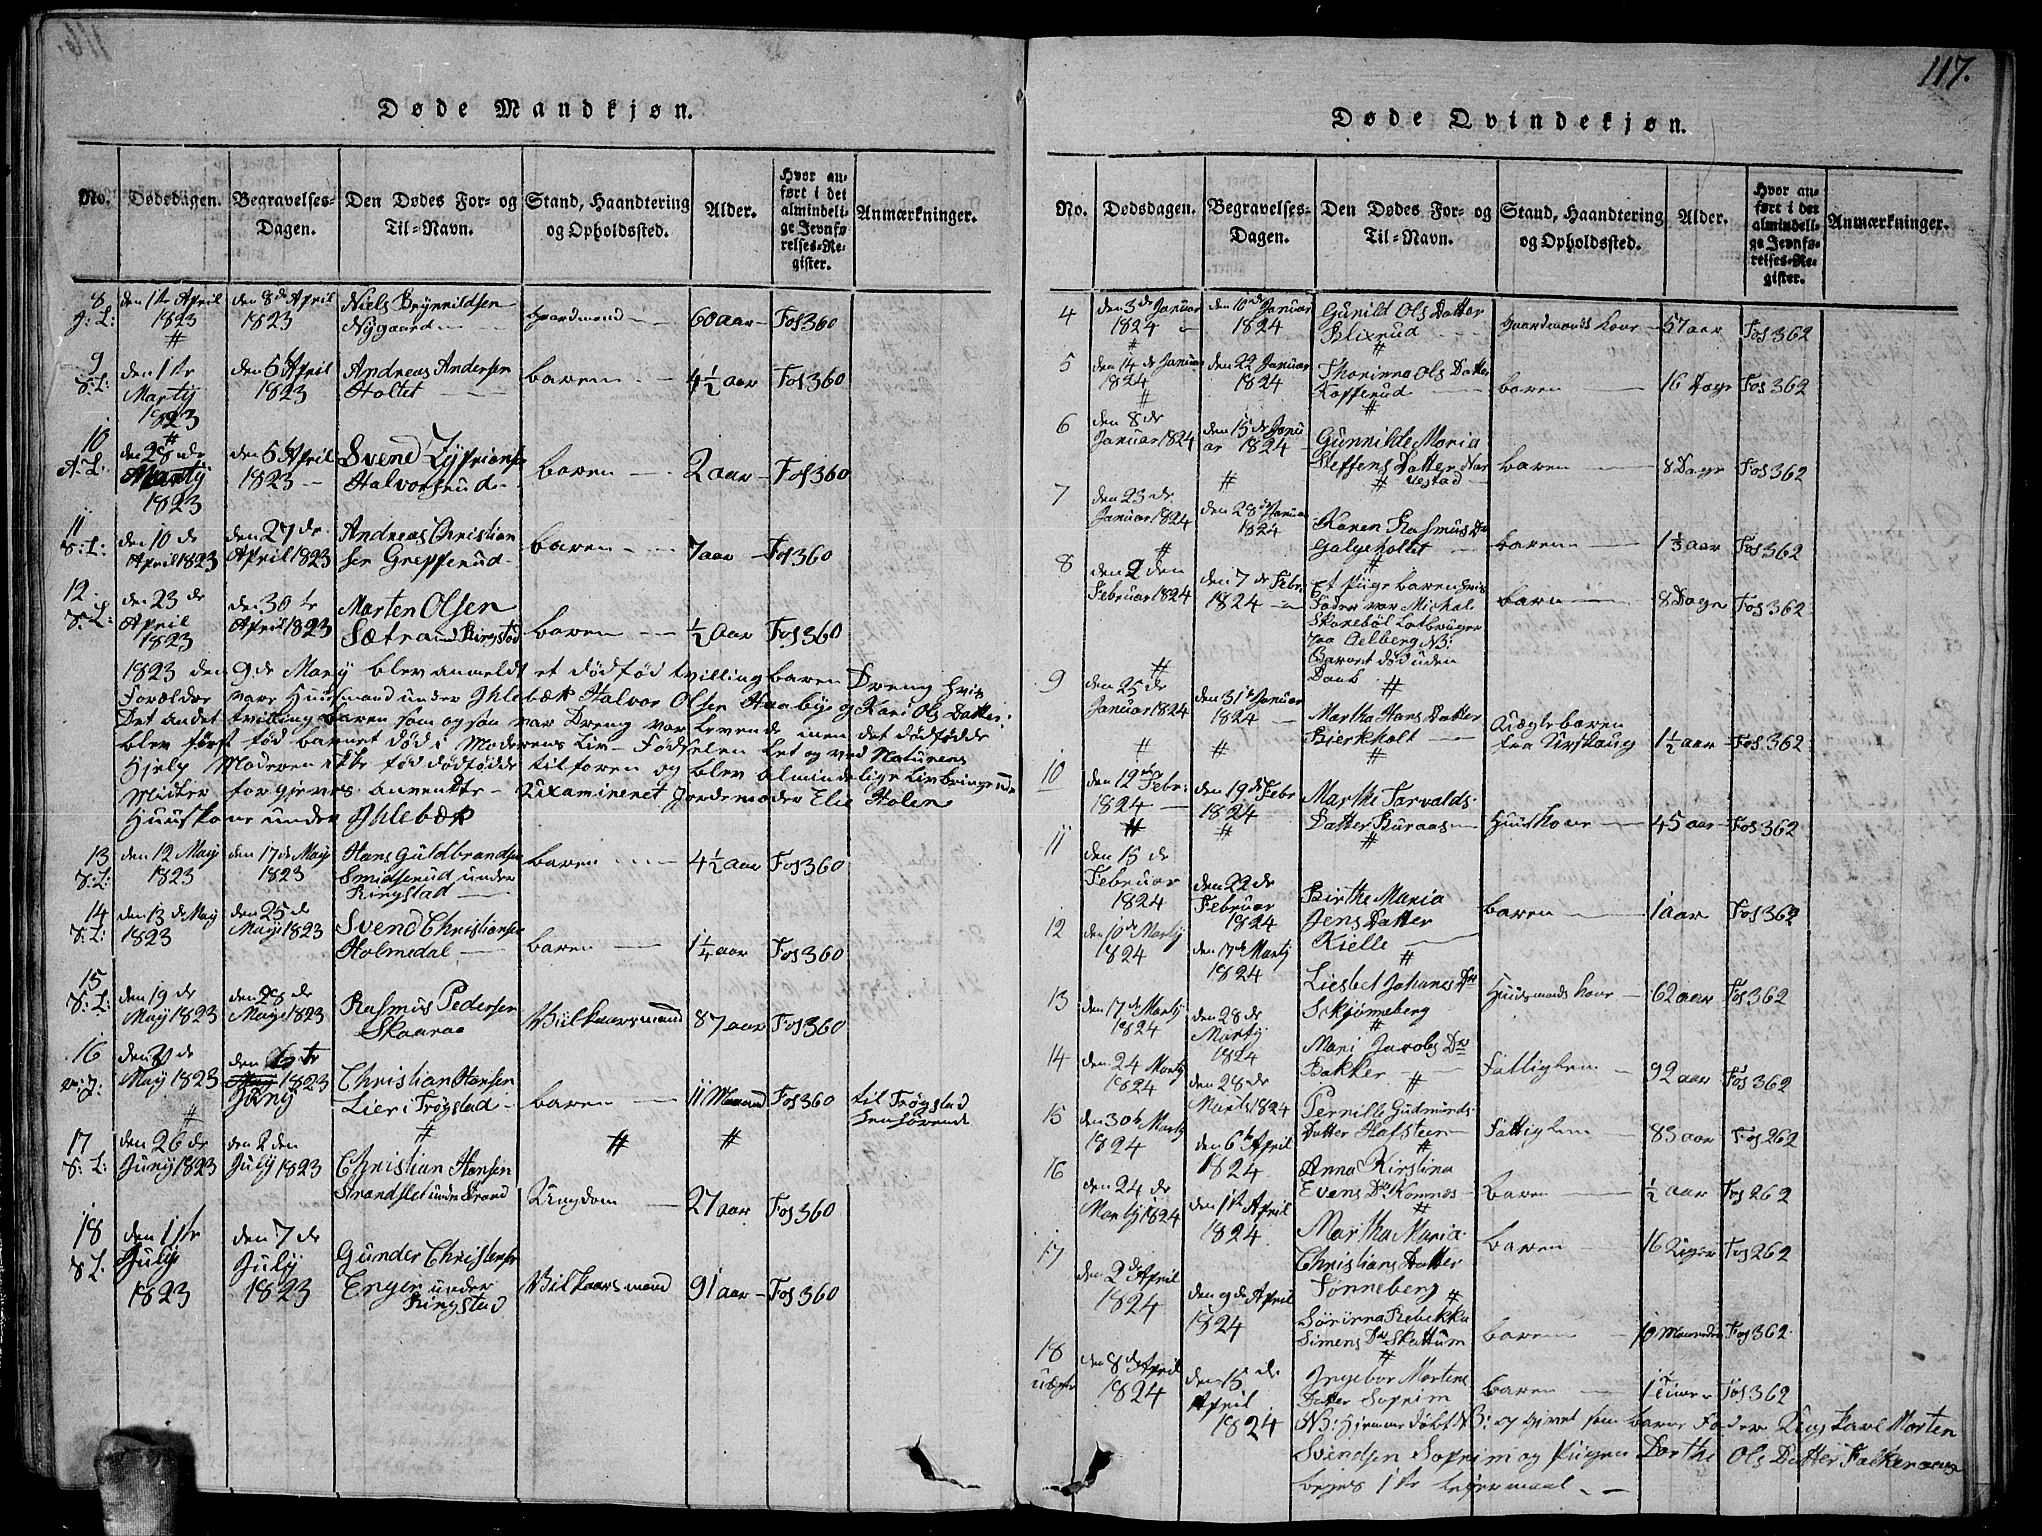 117.
Døde Mandkjøn.
No. Dødsdagen. Begravelses-Dagen. Den Dødes For- og Til-Navn. Stand, Haandtering og Opholdssted. Alder. Hvor anført i det almindelige Jevnførelses-Register. Anmærkninger.
8 den 1ste April 1823 den 8de April 1823 Niels Brynnildsen Nygaard Gaardmand 60 aar Fos 360
9 S: L: den 1ste Martij 1823 den 6te April 1823 Andreas Andersen Holtet baren 4½ aar Fos 360
10 A: L: den 28de Martij 1823 den 6te April 1823 Svend Zyprianse Halvorsrud baren 2 aar Fos 360
11 S: L: den 10de April 1823 den 27de April 1823 Andreas Christianser Grefferud baren 7 aar Fos 360
12 S: L: den 23de April 1823 den 30te April 1823 Morten Olsen Sætra und Ringstad baren ½ aar Fos 360
1823 den 9de Maij blev anmeldt et dødfød tvilling baren Dreng hvis
Forældre vare Huusmand under Ihlebæk Halvor Olsen Haabye og Kari Ols Datter:
Det andet tvilling baren som ogsaa var Dreng var levende men det dødfødde
blev først fød barnet død i Moderens Liv - Fødselen let og ved Naturens
Hjelp Moderen ikke fød dødfødde tilforen og blev almindelige Livbringende
Midler forgjeves anvendte - Examineret Jordemoder Elie Holen
Huuskone under Ihlebæk
13 S: L: den 12 Maij 1823 den 17de Maij 1823 Hans Guldbrandsen Smidsrud under Ringstad baren 4½ aar Fos 360
14 S: L: den 13de Maij 1823 den 25de Maij 1823 Svend Christianse Holmedal baren 1¼ aar Fos 360
15 S: L: den 19de Maij 1823 den 28de Maij 1823 Rasmus Pedersen Skaaraa Vilkaarsmand 87 aar Fos 360
16 den de Maij 1823 den te 1823 Juny Christian Hansen Lier i Trøgstad baren 11 Maaned Fos 360 til Trøgstad henhørende
17 S: L: den 26de Juny 1823 den 2den July 1823 Christian Hansen Strandslet under Strand Ungdom 27 aar Fos 360
18 S: L: den 1ste July 1823 den 7de July 1823 Gunder Christense Enger under Ringstad Vilkaarsmand 91 aar Fos 360
Døde Qvindekjøn.
No. Dødsdagen. Begravelses-Dagen. Den Dødes For- og Til-Navn. Stand, Haandtering og Opholdssted. Alder. Hvor anført i det almindelige Jevnførelses-Register. Anmærkninger.
4 den 3de Januar 1824 den 10de Januar 1824 Gunild Ols Datter Blixrud Gaardmands Kone 57 aar Fos 362
5 den 14de Januar 1824 den 22 Januar 1824 Thorinna Ols Datter Kopperud baren 16 Dage Fos 362
6 den 8de Januar 1824 den 15de Januar 1824 Gunnilde Maria Steffens Datter Narvestad baren 8 Dage Fos 362
7 den 23de Januar 1824 den 28de Januar 1824 Karen Rasmus Dr Galgeholtet baren 1⅓ aar Fos 362
8 den 2den Februar 1824 den 7de Febr. 1824 Et Pige baren hvis Fader var Michel Skarebøl Latbruger paa Oelberg NB: Barnet død uden Daab baren 8 Dage Fos 362
9 den 25de Januar 1824 den 31te Januar 1824 Martha Hans Datter Bierkholt baren fra Urskaug 1½ aar Fos 362
10 den 12te Febr: 1824 den 19de Febr 1824 Marthe Torvalds Datter Buraas Huuskone 45 aar Fos 362
11 den 15de Februar 1824 den 22de Februar 1824 Birthe Maria Jens Datter Kielle baren 1 aar Fos 362
12 den 10de Martij 1824 den 17de Martij 1824 Liesbet Johanes Dr Skjønneberg Huusmands Kone 62 aar Fos 362
13 den 17de Martij 1824 den 28de Martij 1824 Mari Jacobs Dr Bakker Fattiglem 92 aar Fos 362
14 den 24 Martij 1824 den 28de Marts 1824 Pernille Gudmunds Datter Hafsteen Fattiglem 83 aar Fos 262
15 den 30te Martij 1824 den 6te April 1824 Anna Kirstina Evens Dr Komnes baren ½ aar Fos 262
16 den 24de Martij 1824 den 1ste April 1824 Martha Maria Christians Datter Sønneberg baren 16 Uger Fos 262
17 den 2de April 1824 den 9de April 1824 Sørinna Rebekka Simens Dr Skattum baren 10 Maaneder Fos 362
18 uægte den 8de April 1824 den 15de April 1824 Ingebor Mortens Datter Soprim baren 1 Time Fos 362
NB: Hjemmedøbt NB: opgivet som barne Fader Ungkarl Morten
Svendsen Soprim og Pigen Dorthe Ols Datter
begges 1ste Leiermaal